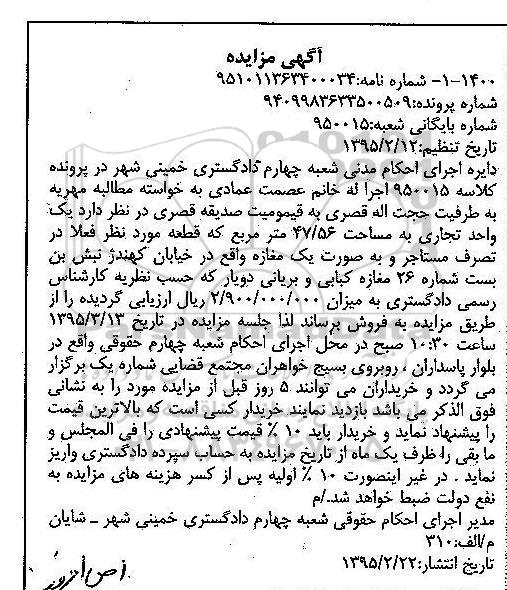 آگهی مزایده
۱-۱۴۰۰- شماره نامه:۹۵۱۰۱۱۳۶۳۴۰۰۰۳۴
شماره پرونده:۹۴۰۹۹۸۳۶۳۳۵۰۰۵۰۹
شماره بایگانی شعبه:۹۵۰۰۱۵
تاریخ تنظیم:۱۳۹۵/۲/۱۲
دایره اجرای احکام مدنی شعبه چهارم دادگستری خمینی شهر در پرونده
کلاسه ۹۵۰۰۱۵ اجرا له خانم عصمت عمادی به خواسته مطالبه مهریه
به طرفیت حجت اله قصری به قیمومیت صدیقه قصری در نظر دارد یک
واحد تجاری به مساحت ۴۷/۵۶ متر مربع که قطعه مورد نظر فعلا در
تصرف مستاجر و به صورت یک مغازه واقع در خیابان کهندژ نبش بن
بست شماره ۲۶ مغازه کبابی و بریانی دوبار که حسب نظریه کارشناس
رسمی دادگستری به میزان ۲/۹۰۰/۰۰۰/۰۰۰ ریال ارزیابی گردیده را از
طریق مزایده به فروش برساند لذا جلسه مزایده در تاریخ ۱۳۹۵/۳/۱۳
ساعت ۱۰:۳۰ صبح در محل اجرای احکام شعبه چهارم حقوقی واقع در
بلوار پاسداران ، روبروی بسیج خواهران مجتمع قضایی شماره یک برگزار
می گردد و خریداران می توانند ۵ روز قبل از مزایده مورد را به نشانی
فوق الذکر می باشد بازدید نمایند خریدار کسی است که بالاترین قیمت
را پیشنهاد نماید و خریدار باید ۱۰ ٪ قیمت پیشنهادی را فی المجلس و
ما بقی را ظرف یک ماه از تاریخ مزایده به حساب سپرده دادگستری واریز
نماید . در غیر اینصورت ۱۰ ٪ اولیه پس از کسر هزینه های مزایده به
نفع دولت ضبط خواهد شد./م
مدیر اجرای احکام حقوقی شعبه چهارم دادگستری خمینی شهر ـ شایان
م/الف:۳۱۰
تاریخ انتشار:۱۳۹۵/۲/۲۲